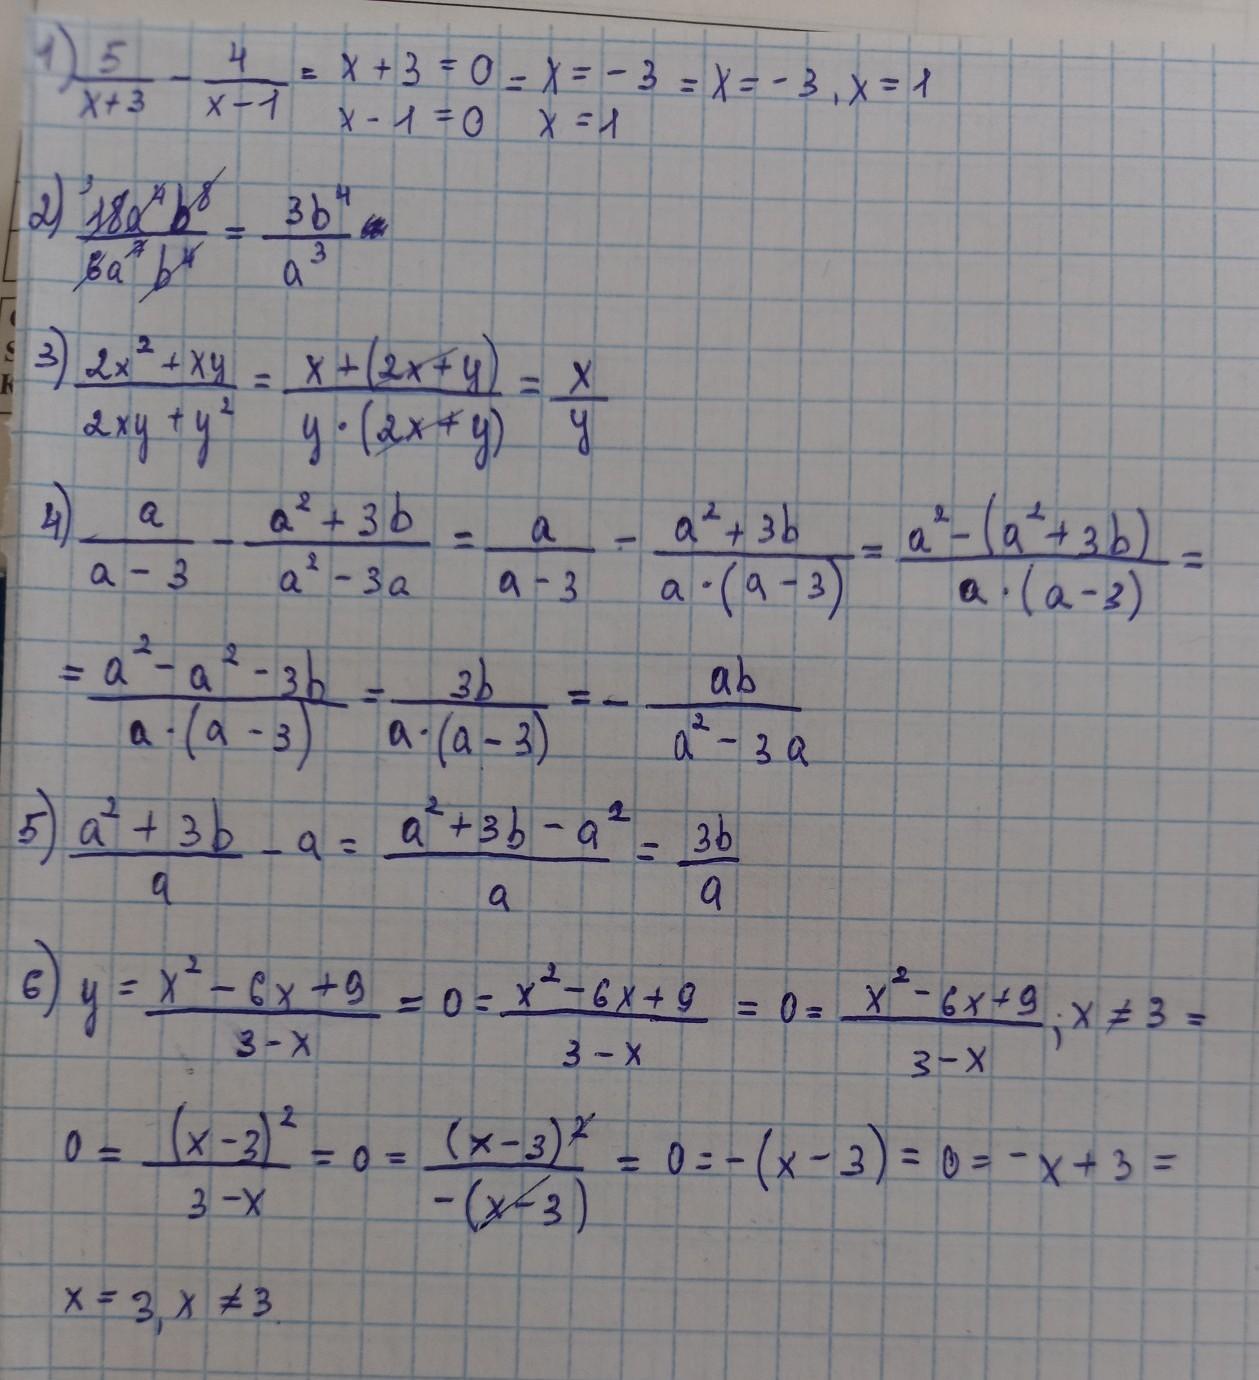 1) 5/(x+3) - 4/(x-1) = x+3=0 = x=-3 = x=-3, x=1
x-1=0 x=1
2) 18a⁴b⁸/6a⁷b⁴ = 3b⁴/a³
3) (2x²+xy)/(2xy+y²) = x+(2x+y)/y·(2x+y) = x/y
4) a/(a-3) - (a²+3b)/(a²-3a) = a/(a-3) - (a²+3b)/a·(a-3) = a²-(a²+3b)/a·(a-3) =
= a²-a²-3b/a·(a-3) = 3b/a·(a-3) = - ab/(a²-3a)
5) (a²+3b)/a - a = (a²+3b-a²)/a = 3b/a
6) y = (x²-6x+9)/(3-x) = 0 = (x²-6x+9)/(3-x) = 0 = (x²-6x+9)/(3-x); x≠3 =
0 = (x-3)²/(3-x) = 0 = (x-3)²/-(x-3) = 0 = -(x-3) = 0 = -x+3 =
x=3, x≠3.